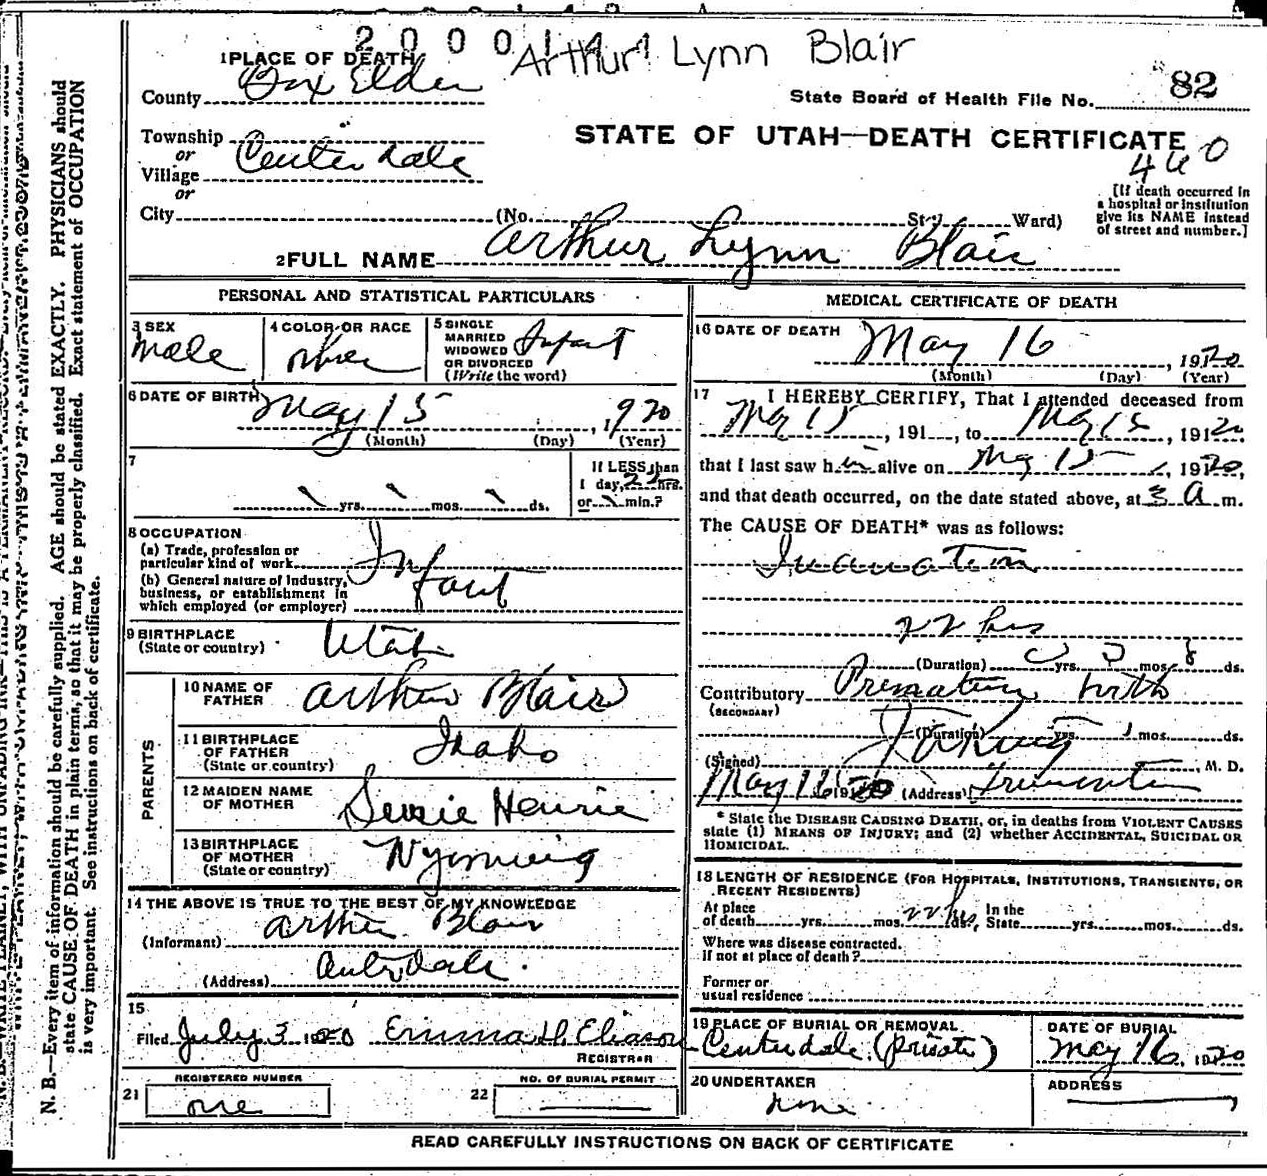 2 0 0 0 1 4 1
Arthur Lynn Blair
1 PLACE OF DEATH
County Box Elder
State Board of Health File No. 82
Township
or
Village Centerdale
or
STATE OF UTAH—DEATH CERTIFICATE
460
City (No. St.; Ward)
[If death occurred in
a hospital or institution
give its NAME instead
of street and number.]
2 FULL NAME Arthur Lynn Blair
PERSONAL AND STATISTICAL PARTICULARS
3 SEX
Male
4 COLOR OR RACE
5 SINGLE
MARRIED
WIDOWED
OR DIVORCED
(Write the word)
Infant
6 DATE OF BIRTH
May 15, 1920
(Month) (Day) (Year)
7
yrs. mos. ds.
If LESS than
1 day, 22 hrs.
or min.?
8 OCCUPATION
(a) Trade, profession or
particular kind of work
Infant
(b) General nature of Industry,
business, or establishment in
which employed (or employer)
9 BIRTHPLACE
(State or country)
Utah
PARENTS
10 NAME OF
FATHER
Arthur Blair
11 BIRTHPLACE
OF FATHER
(State or country)
Idaho
12 MAIDEN NAME
OF MOTHER
Henrie
13 BIRTHPLACE
OF MOTHER
(State or country)
Wyoming
14 THE ABOVE IS TRUE TO THE BEST OF MY KNOWLEDGE
(Informant) Arthur Blair
(Address) Centerdale
15
Filed July 3 1920 Emma H. Eliason
REGISTRAR
REGISTERED NUMBER
21 one
NO. OF BURIAL PERMIT
22
MEDICAL CERTIFICATE OF DEATH
16 DATE OF DEATH
May 16, 1920
(Month) (Day) (Year)
17 I HEREBY CERTIFY, That I attended deceased from
May 15, 191, to May 15, 1920
that I last saw him alive on May 15, 1920,
and that death occurred, on the date stated above, at 3 a m.
The CAUSE OF DEATH* was as follows:
Inanation
22 hrs
(Duration) yrs. mos. ds.
Contributory Premature birth
(SECONDARY)
(Duration) yrs. mos. ds.
(Signed) M. D.
May 16 1920 (Address) Tremonton
* State the DISEASE CAUSING DEATH, or, in deaths from VIOLENT CAUSES
state (1) MEANS OF INJURY; and (2) whether ACCIDENTAL, SUICIDAL OR
HOMICIDAL.
18 LENGTH OF RESIDENCE (FOR HOSPITALS, INSTITUTIONS, TRANSIENTS, OR
RECENT RESIDENTS)
At place
of death yrs. mos. 22 hrs. In the
State yrs. mos. ds.
Where was disease contracted.
If not at place of death?
Former or
usual residence
19 PLACE OF BURIAL OR REMOVAL
Centerdale (private)
DATE OF BURIAL
May 16, 1920
20 UNDERTAKER
none
ADDRESS
READ CAREFULLY INSTRUCTIONS ON BACK OF CERTIFICATE
N. B.—Every item of information should be carefully supplied. AGE should be stated EXACTLY. PHYSICIANS should
state CAUSE OF DEATH in plain terms, so that it may be properly classified. Exact statement of OCCUPATION
is very important. See instructions on back of certificate.